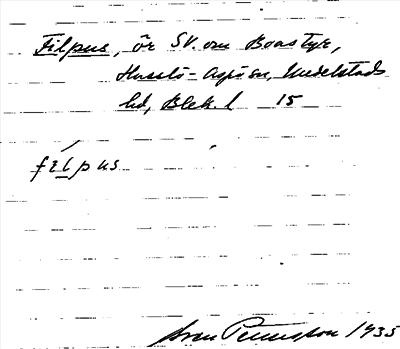 Filpus, ör SV. om Boastyr,
Hasslö-Aspö sn, Medelstads
hd, Blek. l 15
fílpus
Sven Petersson 1935